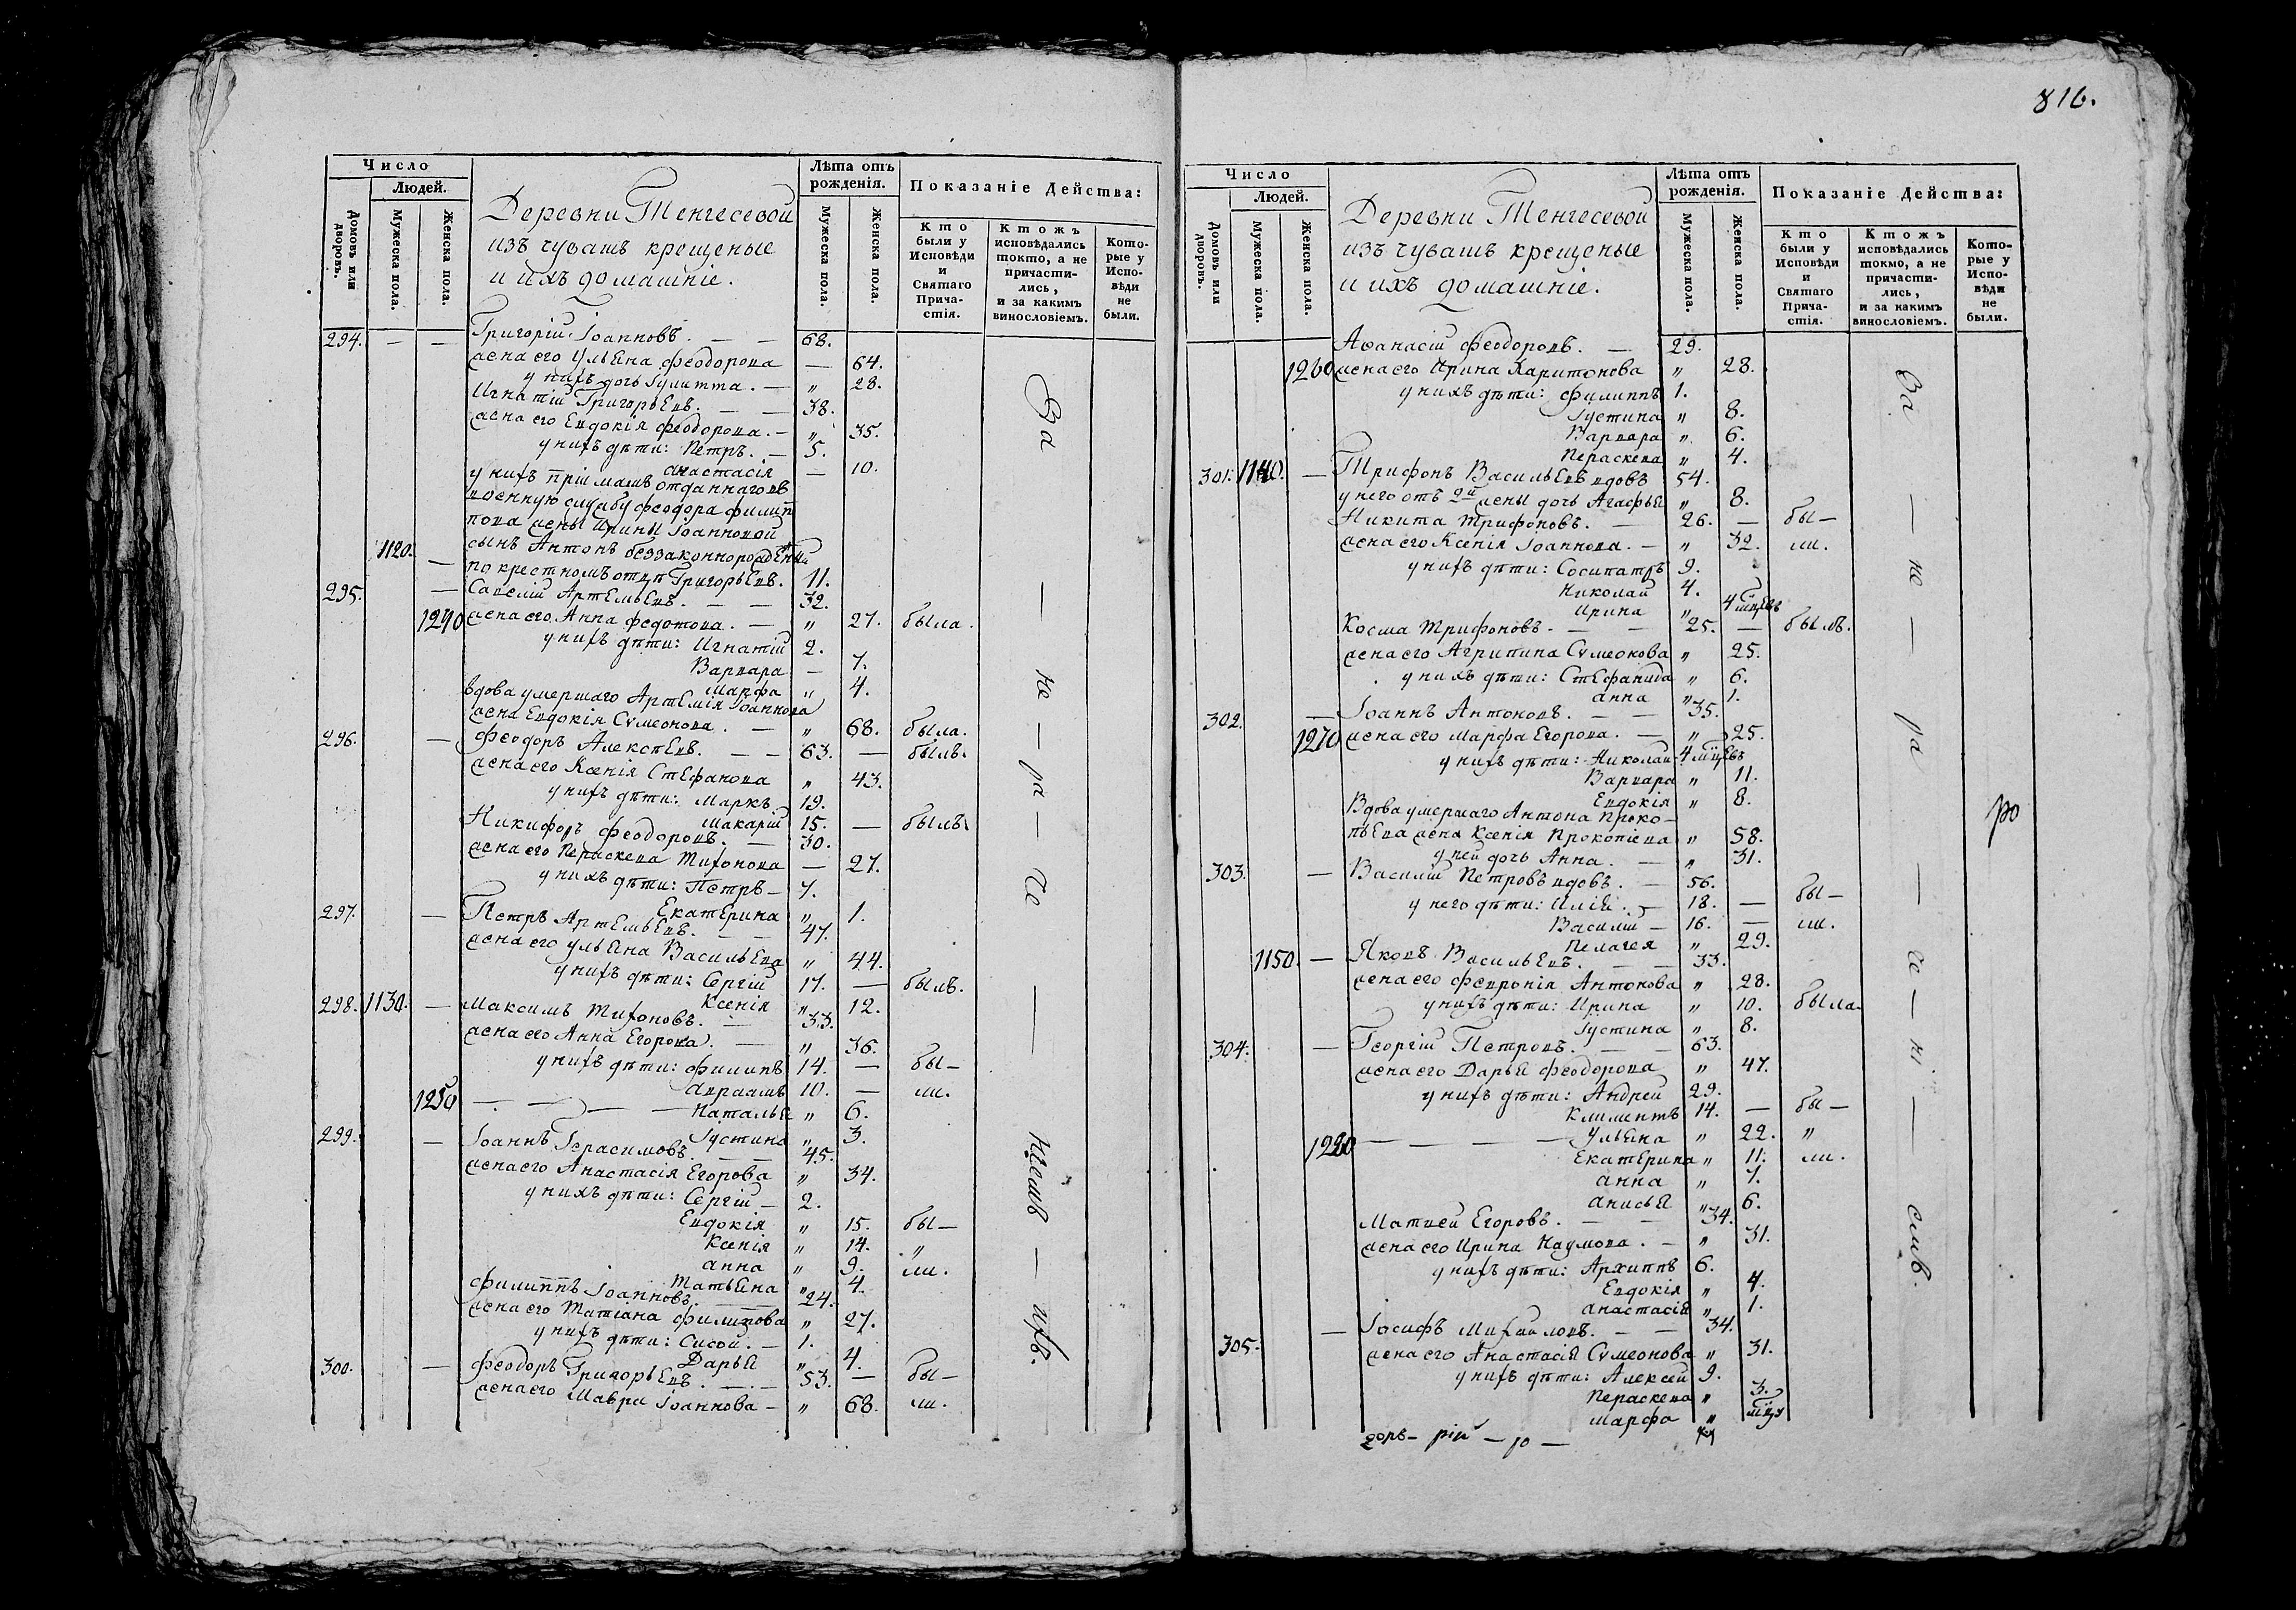 816.
Число
Людей.
Домовъ или дворовъ.
Мужеска пола.
Женска пола.
Деревни Тенгесевой
изъ чувашъ крещеные
и ихъ домашніе.
Лѣта отъ рожденія.
Мужеска пола.
Женска пола.
Показаніе Действа:
Кто были у Исповѣди и Святаго Прича-стія.
Ктожъ исповѣдались токто, а не причасти-лись, и за какимъ винословіемъ.
Кото-рые у Испо-вѣди не были.
294. — — Григорій Іоанновъ. — — 68.
жена его Ульяна Феодорова — 64.
у нихъ дочь Іулитта. — „ 28.
Игнатій Григорьевъ. — — 38.
жена его Евдокія Феодорова. — „ 35.
у нихъ дѣти: Петръ. — 5.
Анастасія — 10.
у нихъ пріимашъ отданнаго въ
военную службу Феодора Филип
пова жены Ирины Іоанновой
1120. — сынъ Антонъ беззаконнорожденный
по крестномъ отцѣ Григорьевъ. 11.
295. — Савелій Артемьевъ. — — 32.
1240 жена его Анна Федотова. — „ 27. была.
у нихъ дѣти: Игнатій 2.
Варвара — 7.
Марфа „ 4.
вдова умершаго Артемія Іоаннова
жена Евдокія Сѵмеонова. — „ 68. была.
296. — Феодоръ Алексѣевъ. — — 63. — былъ.
жена его Ксенія Стефанова „ 43.
у нихъ дѣти: Маркъ. 19.
Макарій 15. — былъ.
Никифоръ Феодоровъ. — 30.
жена его Пераскева Тихонова — 27.
у нихъ дѣти: Петръ — 7.
Екатерина „ 1.
297. — Петръ Артемьевъ. — — 47.
жена его Ульяна Васильева „ 44.
у нихъ дѣти: Сергій 17. — былъ.
Ксенія „ 12.
298. 1130. — Максимъ Тихоновъ. — 33.
жена его Анна Егорова. — „ 36.
у нихъ дѣти: Филипъ 14. — бы—
Авраамъ 10. — ли.
1250 — — — — Наталья „ 6.
Іустина „ 3.
299. — Іоаннъ Герасимовъ. — — 45.
жена его Анастасія Егорова „ 34.
у нихъ дѣти: Сергій — 2.
Евдокія „ 15. бы—
Ксенія „ 14. „
Анна „ 9. ли.
Татьяна „ 4.
Филиппъ Іоанновъ. — — 24.
жена его Татіана Филипова „ 27.
у нихъ дѣти: Сисой. — 1.
Дарья „ 4.
300. — Феодоръ Григорьевъ. — — 53. — бы—
жена его Мавра Іоаннова — „ 68. ли.
За — не — ра — че — ніемъ — ихъ.
Число
Людей.
Домовъ или дворовъ.
Мужеска пола.
Женска пола.
Деревни Тенгесевой
изъ чувашъ крещеные
и ихъ домашніе.
Лѣта отъ рожденія.
Мужеска пола.
Женска пола.
Показаніе Действа:
Кто были у Исповѣди и Святаго Прича-стія.
Ктожъ исповѣдались токмо, а не причасти-лись, и за какимъ винословіемъ.
Кото-рые у Испо-вѣди не были.
Аѳанасій Феодоровъ. — 29.
1260 жена его Ирина Харитонова „ 28.
у нихъ дѣти: Филиппъ 1.
Іустина „ 8.
Варвара „ 6.
Пераскева „ 4.
301. 1140. — Трифонъ Васильевъ вдовъ 54.
у него отъ 2й жены дочь Агафья „ 8.
Никита Трифоновъ. — 26. — бы—
жена его Ксенія Іоаннова. — „ 32. ли.
у нихъ дѣти: Сосипатръ 9.
Николай 4.
Ирина „ 4 мцевъ
Косма Трифоновъ. — — 25. — былъ.
жена его Агрипина Сѵмеонова „ 25.
у нихъ дѣти: Стефанида „ 6.
Анна „ 1.
302. — Іоаннъ Антоновъ. — — 35.
1270 жена его Марфа Егорова. — „ 25.
у нихъ дѣти: Николай 4 мцевъ
Варвара „ 11.
Евдокія „ 8.
Вдова умершаго Антона Проко—
пьева жена Ксенія Прокопіева „ 58.
у ней дочь Анна. — „ 31.
303. — Василій Петровъ вдовъ. — 56.
у него дѣти: Илія. — 18. — бы—
Василій — 16. — ли.
Пелагея „ 29.
1150. — Яковъ Васильевъ. — — 33.
жена его Февронія Антонова „ 28.
у нихъ дѣти: Ирина „ 10. была.
Іустина „ 8.
304. — Георгій Петровъ. — — 63.
жена его Дарья Феодорова „ 47.
у нихъ дѣти: Андрей 29.
Климентъ 14. — бы—
1280 — — — — Ульяна „ 22. „
Екатерина „ 11. ли.
Анна „ 7.
Анисья „ 6.
Матвей Егоровъ. — — 34.
жена его Ирина Наумова. — „ 31.
у нихъ дѣти: Архиппъ 6.
Евдокія „ 4.
Анастасія „ 1.
305. — Іосифъ Михайловъ. — — 34.
жена его Анастасія Сѵмеонова „ 31.
у нихъ дѣти: Алексей 9.
Пераскева „ 3.
Марфа „
За — не — ра — че — ні —
ро